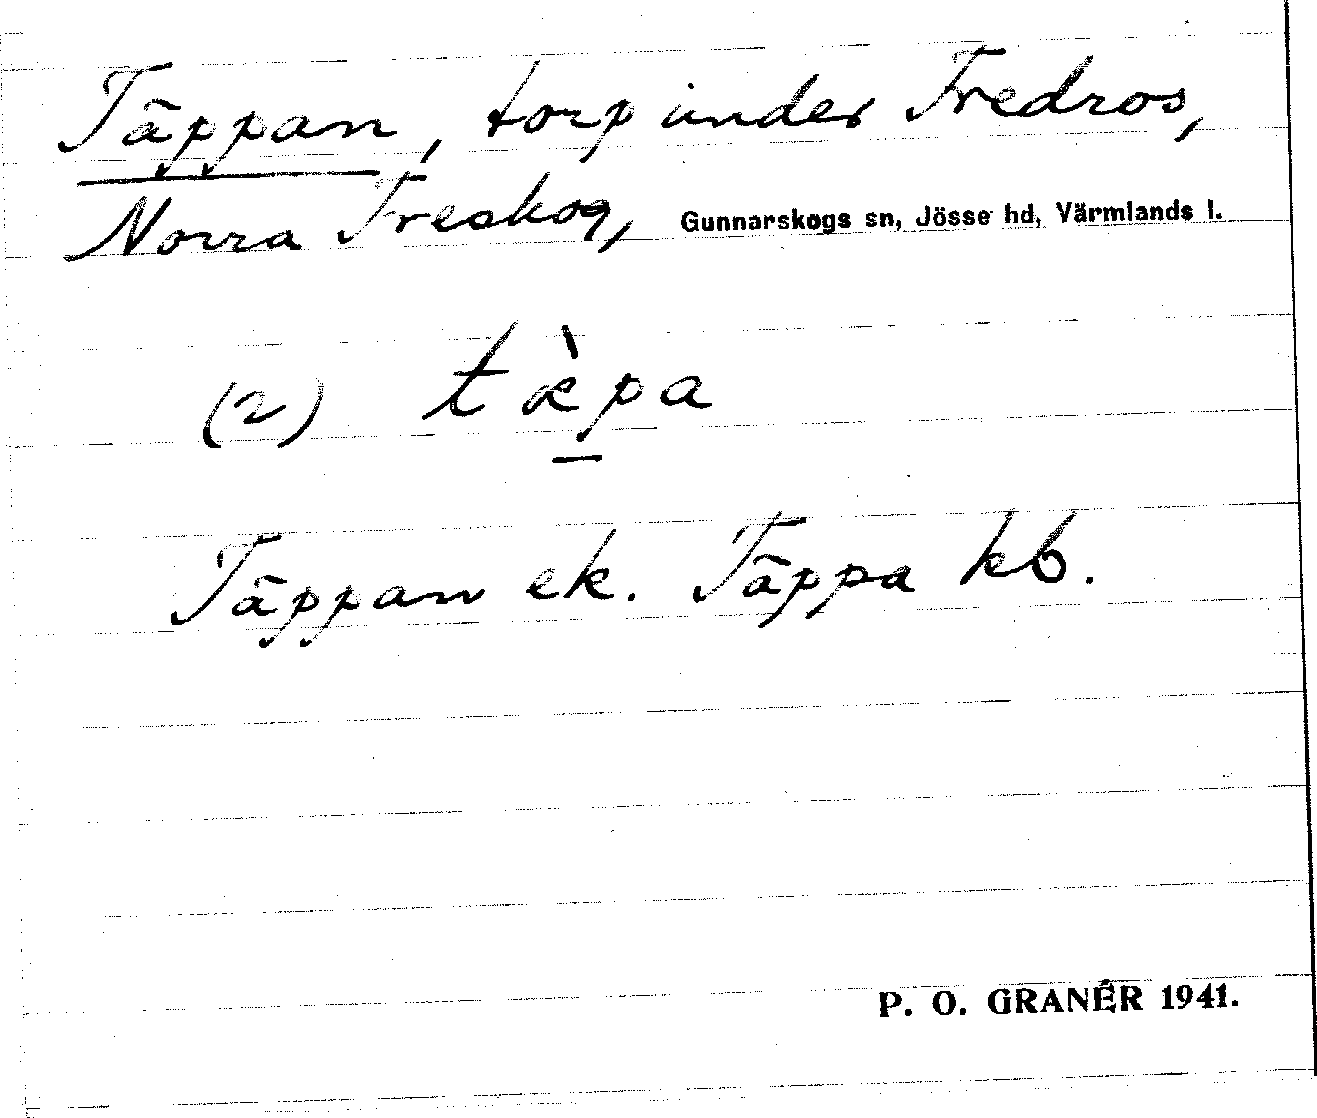 Täppan, torp under Fredros,
Norra Treskog, Gunnarskogs sn, Jösse hd, Värmlands l.
(2) tæ̀pa
Täppan ek. Täppa kb.
P. O. GRANÉR 1941.